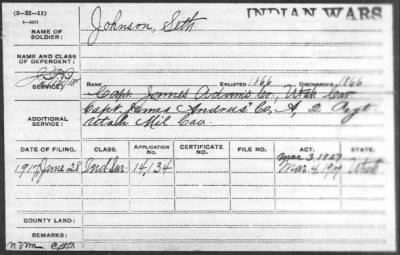 (3-EE-11)
INDIAN WARS
NAME OF SOLDIER:
Johnson, Seth
NAME AND CLASS OF DEPENDENT:
SERVICE:
RANK
ENLISTED 1866
DISCHARGED 1866
Capt. James Adrus Co., Utah Cav
ADDITIONAL SERVICE:
Capt. James Andrus' Co., A, 2 Regt
Utah Mil Cav.
DATE OF FILING.
CLASS.
APPLICATION NO.
CERTIFICATE NO.
FILE NO.
ACT.
STATE.
Mar 3, 1927
1917 June 28
Ind. Sur.
14,134
Mar. 4, 1917
Utah
COUNTY LAND:
REMARKS: